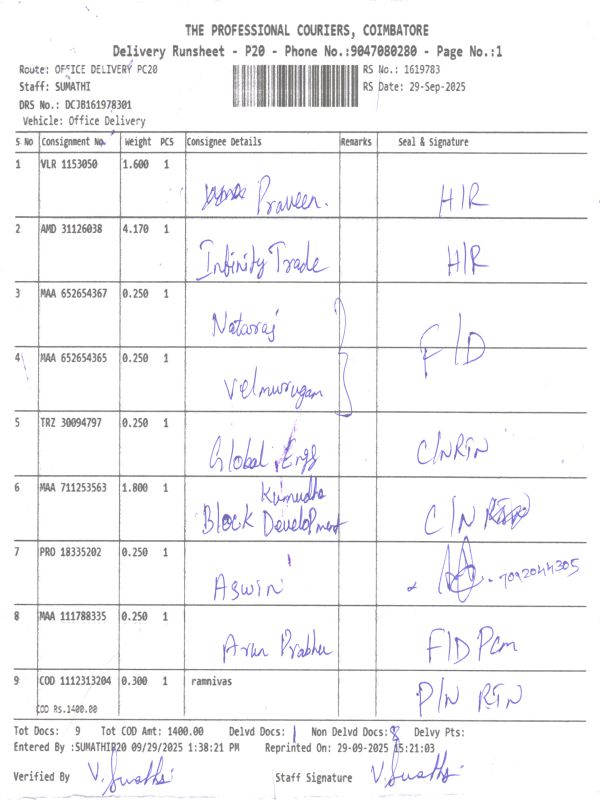 THE PROFESSIONAL COURIERS, COIMBATORE
Delivery Runsheet - P20 - Phone No.:9047080280 - Page No.:1
Route: OFFICE DELIVERY PC20 RS No.: 1619783
Staff: SUMATHI RS Date: 29-Sep-2025
DRS No.: DCJB161978301
Vehicle: Office Delivery
S No Consignment No. Weight PCS Consignee Details Remarks Seal & Signature
1 VLR 1153050 1.600 1
Praveen. H/R
2 AMD 31126038 4.170 1
Infinity Trade H/R
3 MAA 652654367 0.250 1
Nataraj F/D
4 MAA 652654365 0.250 1
Velmurugam
5 TRZ 30094797 0.250 1
Global Engg C/N RTN
6 MAA 711253563 1.800 1
Kumudha
Block Development C/N
7 PRO 18335202 0.250 1
Aswin 7092044305
8 MAA 111788335 0.250 1
Arun Prabhu F/D Pcm
9 COD 1112313204 0.300 1 ramnivas
P/N RTN
COD Rs.1400.00
Tot Docs: 9 Tot COD Amt: 1400.00 Delvd Docs: 1 Non Delvd Docs: 8 Delvy Pts:
Entered By :SUMATHIP20 09/29/2025 1:38:21 PM Reprinted On: 29-09-2025 15:21:03
Verified By V. Sumathi Staff Signature V. Sumathi